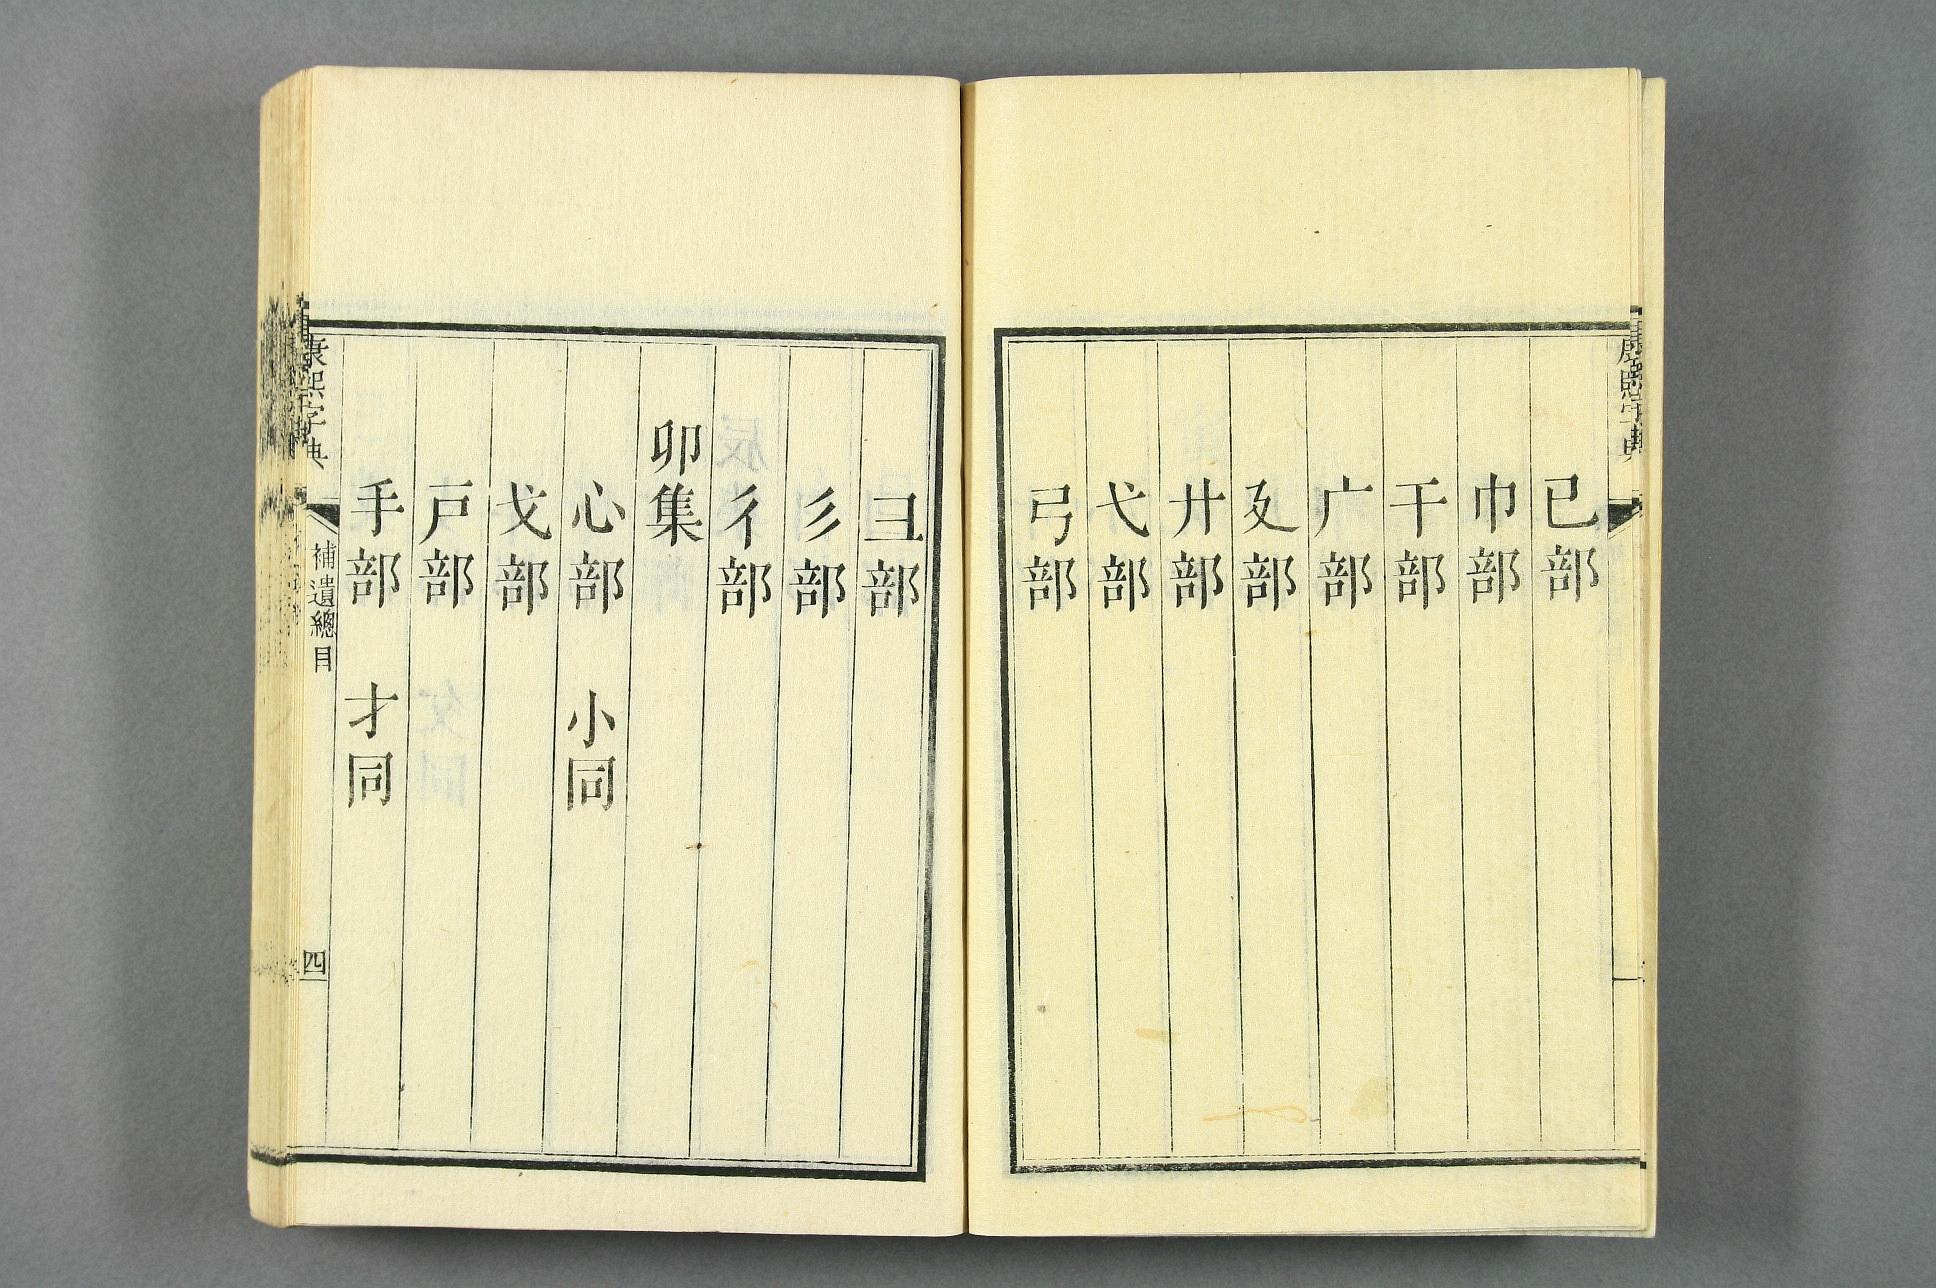 康熙字典
已部
巾部
干部
广部
廴部
廾部
弋部
弓部
彐部
彡部
彳部
卯集
心部 小同
戈部
戸部
手部 才同
康熙字典
補遺總目
四